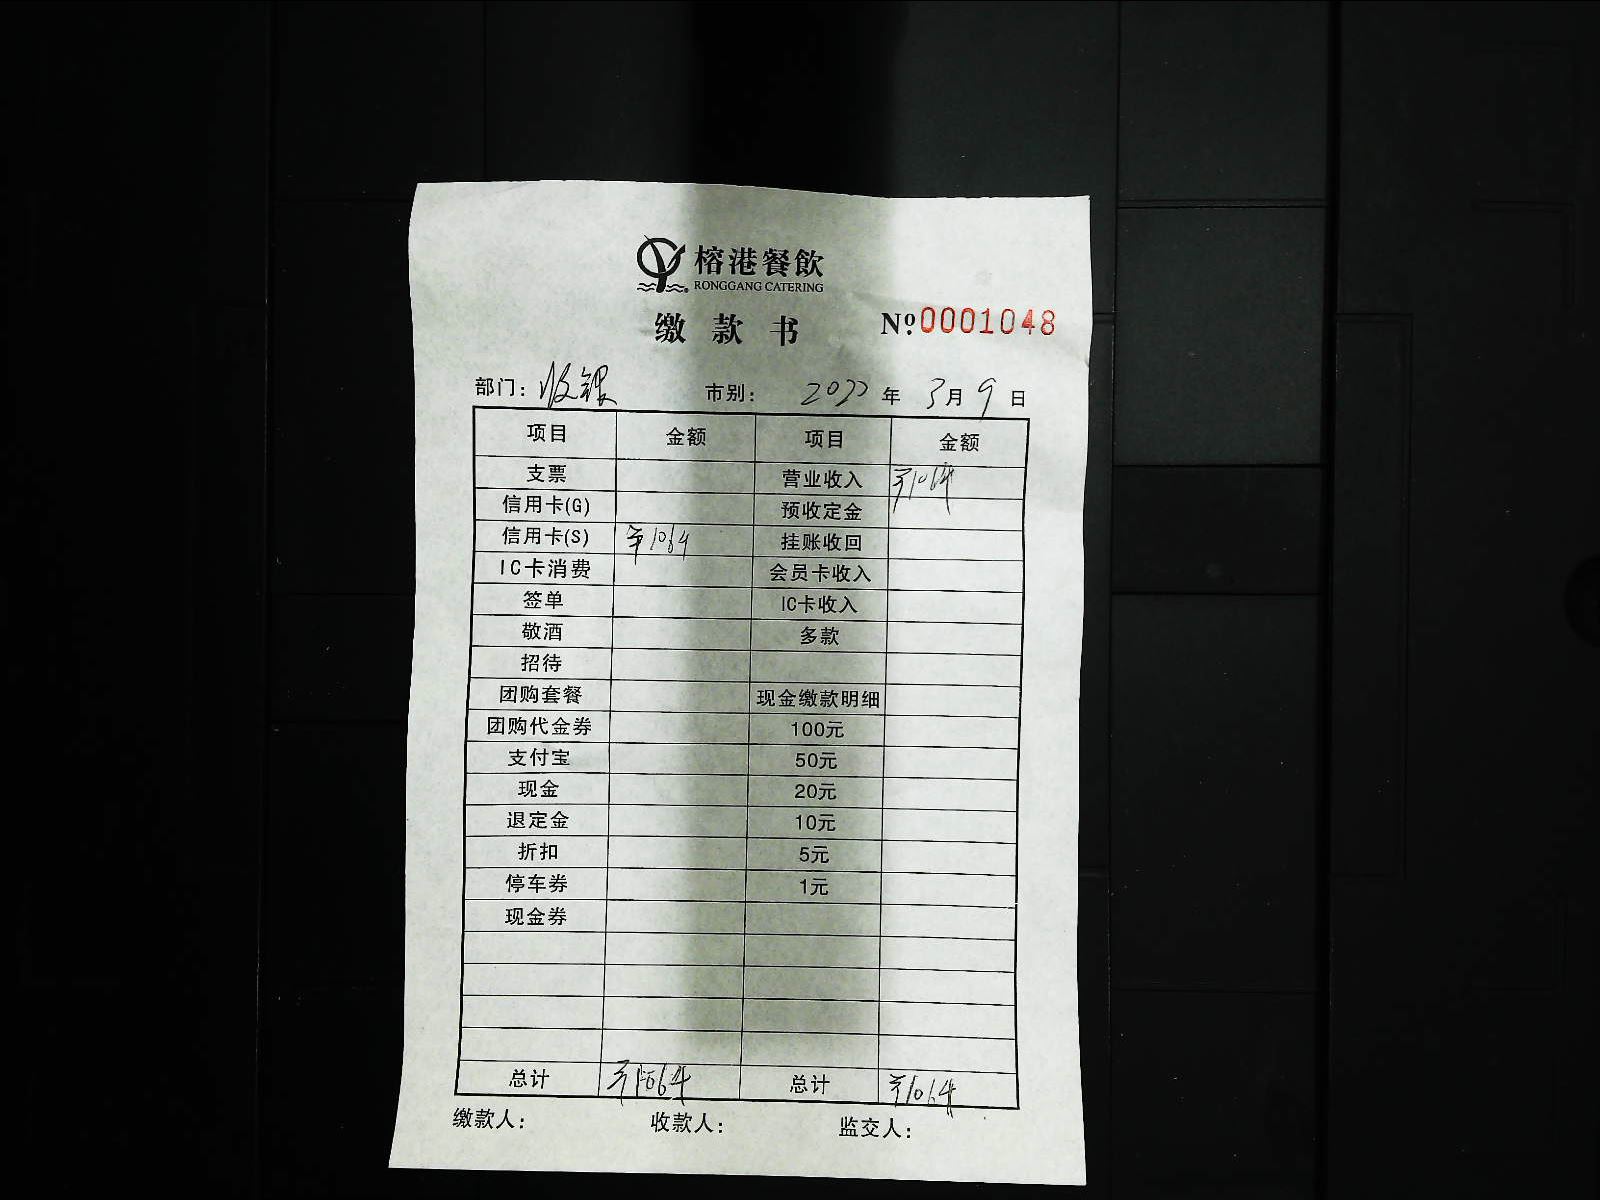 榕港餐飲
RONGGANG CATERING
缴款书 Nº 0001048
部门：收银 市别： 2022年3月9日
项目 金额 项目 金额
支票 营业收入 ¥1064
信用卡(G) 预收定金
信用卡(S) ¥1064 挂账收回
IC卡消费 会员卡收入
签单 IC卡收入
敬酒 多款
招待
团购套餐 现金缴款明细
团购代金券 100元
支付宝 50元
现金 20元
退定金 10元
折扣 5元
停车券 1元
现金券
总计 ¥1064 总计 ¥1064
缴款人： 收款人： 监交人：